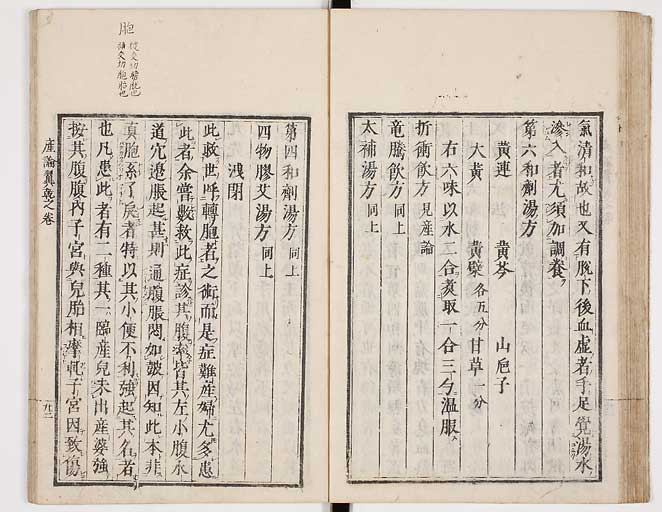 氣清和故也又有脫下後血虛者手足覺湯水
滲入者尤須加調養
第六和劑湯方
黃連 黃芩 山梔子
大黃 黃檗各五分 甘草一分
右六味以水二合煮取一合三勺溫服
折衝飲方見産論
竜騰飲方同上
太補湯方同上
胞
第四和劑湯方同上
四物膠艾湯方同上
浅閉
此救世呼轉胞者之術而是症難産婦尤多患
此者余嘗數救此症診其腹索皆其左小腹水
道宂邊脹起甚則通腹脹悶如皷因知此本非
真胞系了戾者特以其小便不利強起其名者
也凡患此者有二種其一臨産兒未出産婆強
按其腹腹內子宮與兒胎相摩軋子宮因致傷
産論翼乾之卷